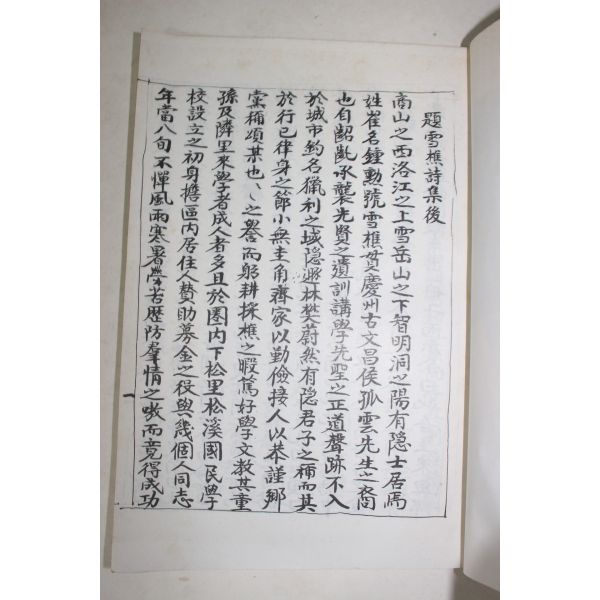 題雪樵詩集後
商山之西洛江之上雪岳山之下智明洞之陽有隠士居焉
姓崔名鍾勲號雪樵貫慶州古文昌侯孤雲先生之裔
也自齠齔承襲先賢之遺訓講學先聖之正道聲跡不入
於城市釣名獵利之域隠淤林樊蔚然有隠君子之称而其
於行已律身之節小無圭角齊家以勤儉接人以恭謹鄉
黨稱頌某也、之譽而躬耕採樵之暇篤好學文教其童
孫及隣里来學者成人者多且於圏内下松里松溪國民學
校設立之初身擔區内居住人賛助募金之役與幾個人同志
年當八旬不憚風雨寒暑辛苦歴防羣情之嗷而竟得成功